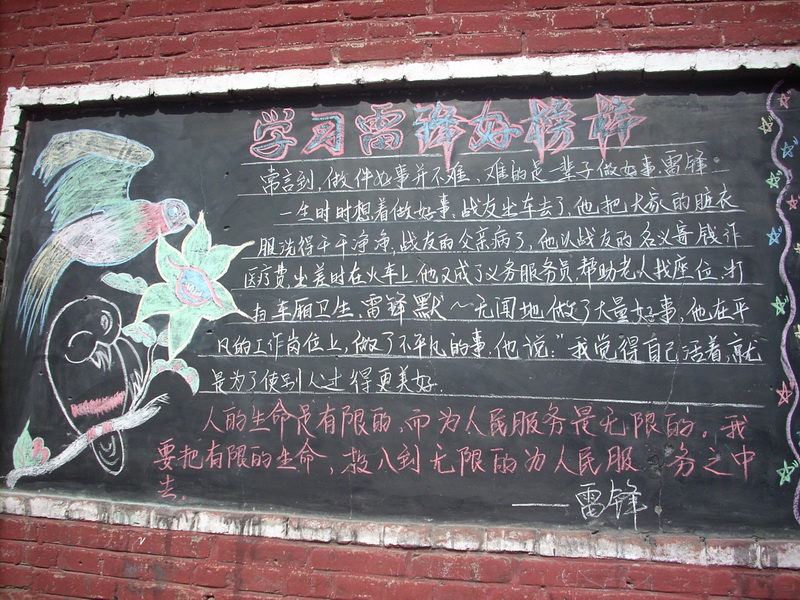 学习雷锋好榜样
常言到,做件好事并不难、难的是一辈子做好事,雷锋。
一生时时想着做好事,战友出车去了,他把大家的脏衣
服洗得干干净净,战友的父亲病了,他以战友的名义寄钱作
医疗费,出差时在火车上,他又成了义务服务员,帮助老人找座位,打
扫车厢卫生,雷锋默~无闻地做了大量好事,他在平
凡的工作岗位上,做了不平凡的事,他说:"我觉得自己活着,就
是为了使别人过得更美好.
人的生命是有限的,而为人民服务是无限的,我
要把有限的生命,投入到无限的为人民服务之中
去.
——雷锋